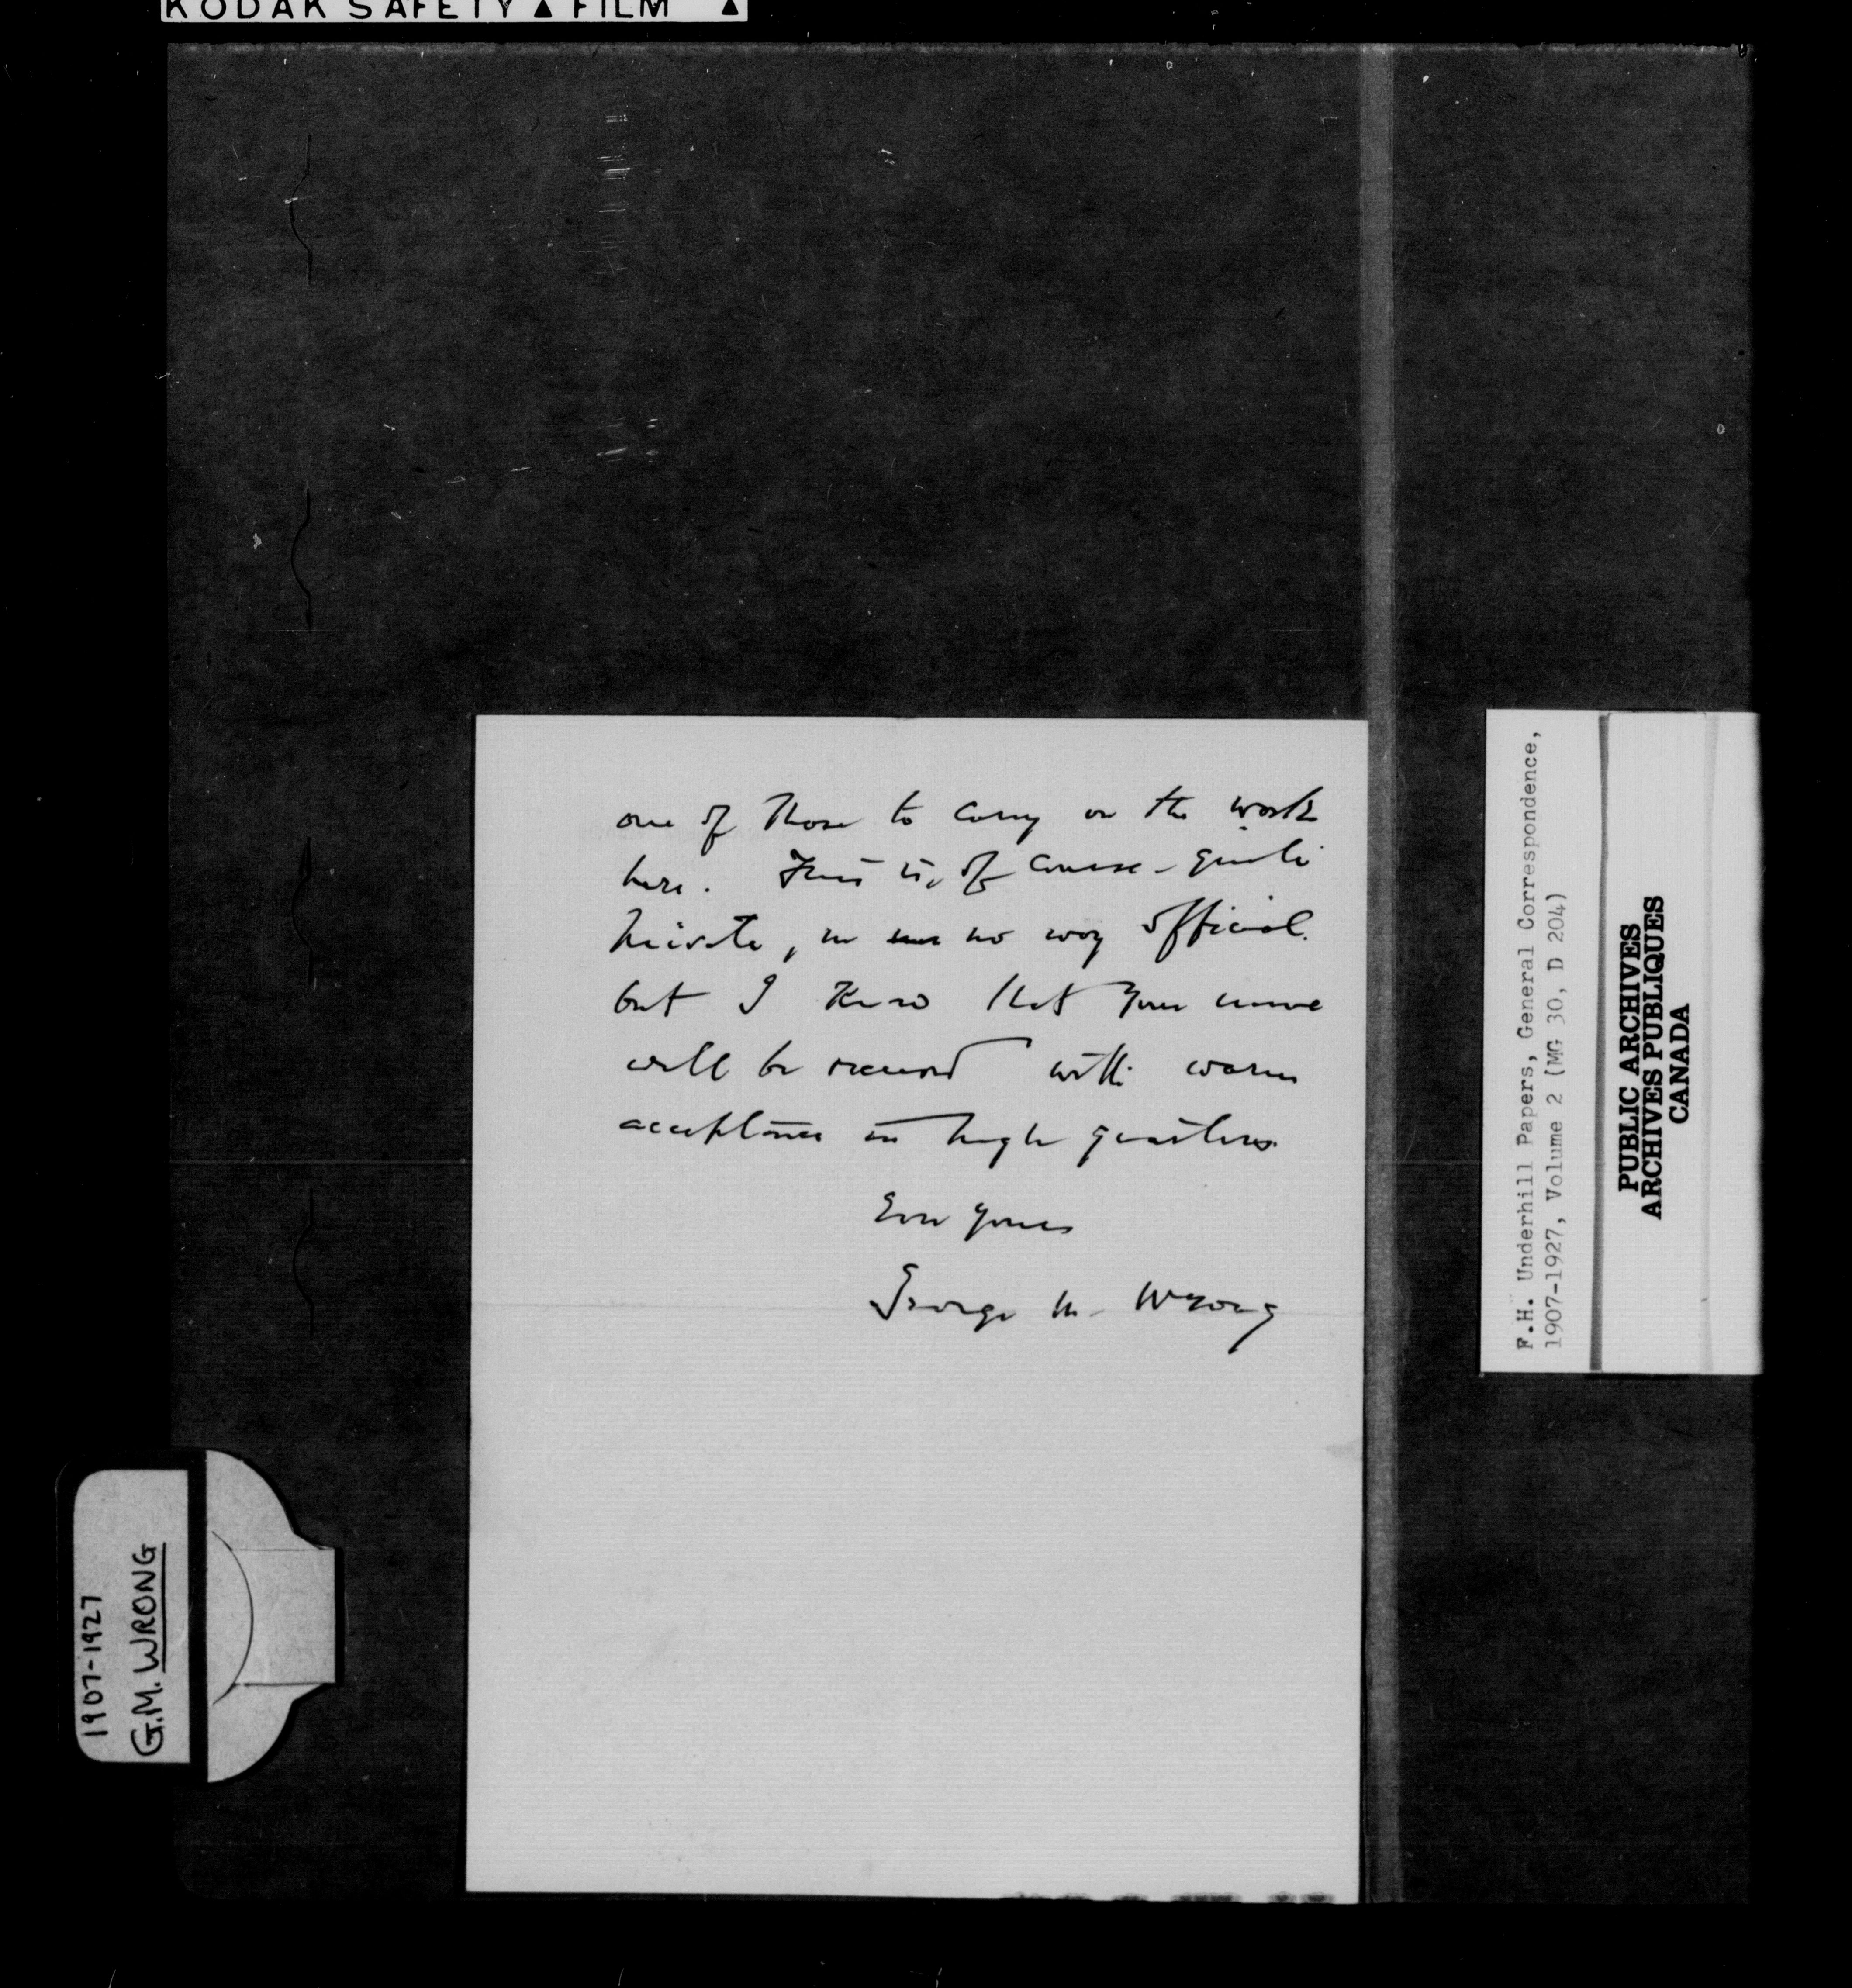 KODAK SAFETY ▲ FILM ▲
one of those to carry on the work
here. This is, of course - quite
private, in no way official.
but I know that your name
will be received with warm
acceptance in high quarters.
Ever yours
George M. Wrong
F.H. Underhill Papers, General Correspondence,
1907-1927, Volume 2 (MG 30, D 204)
PUBLIC ARCHIVES
ARCHIVES PUBLIQUES
CANADA
1907-1927
G.M. WRONG